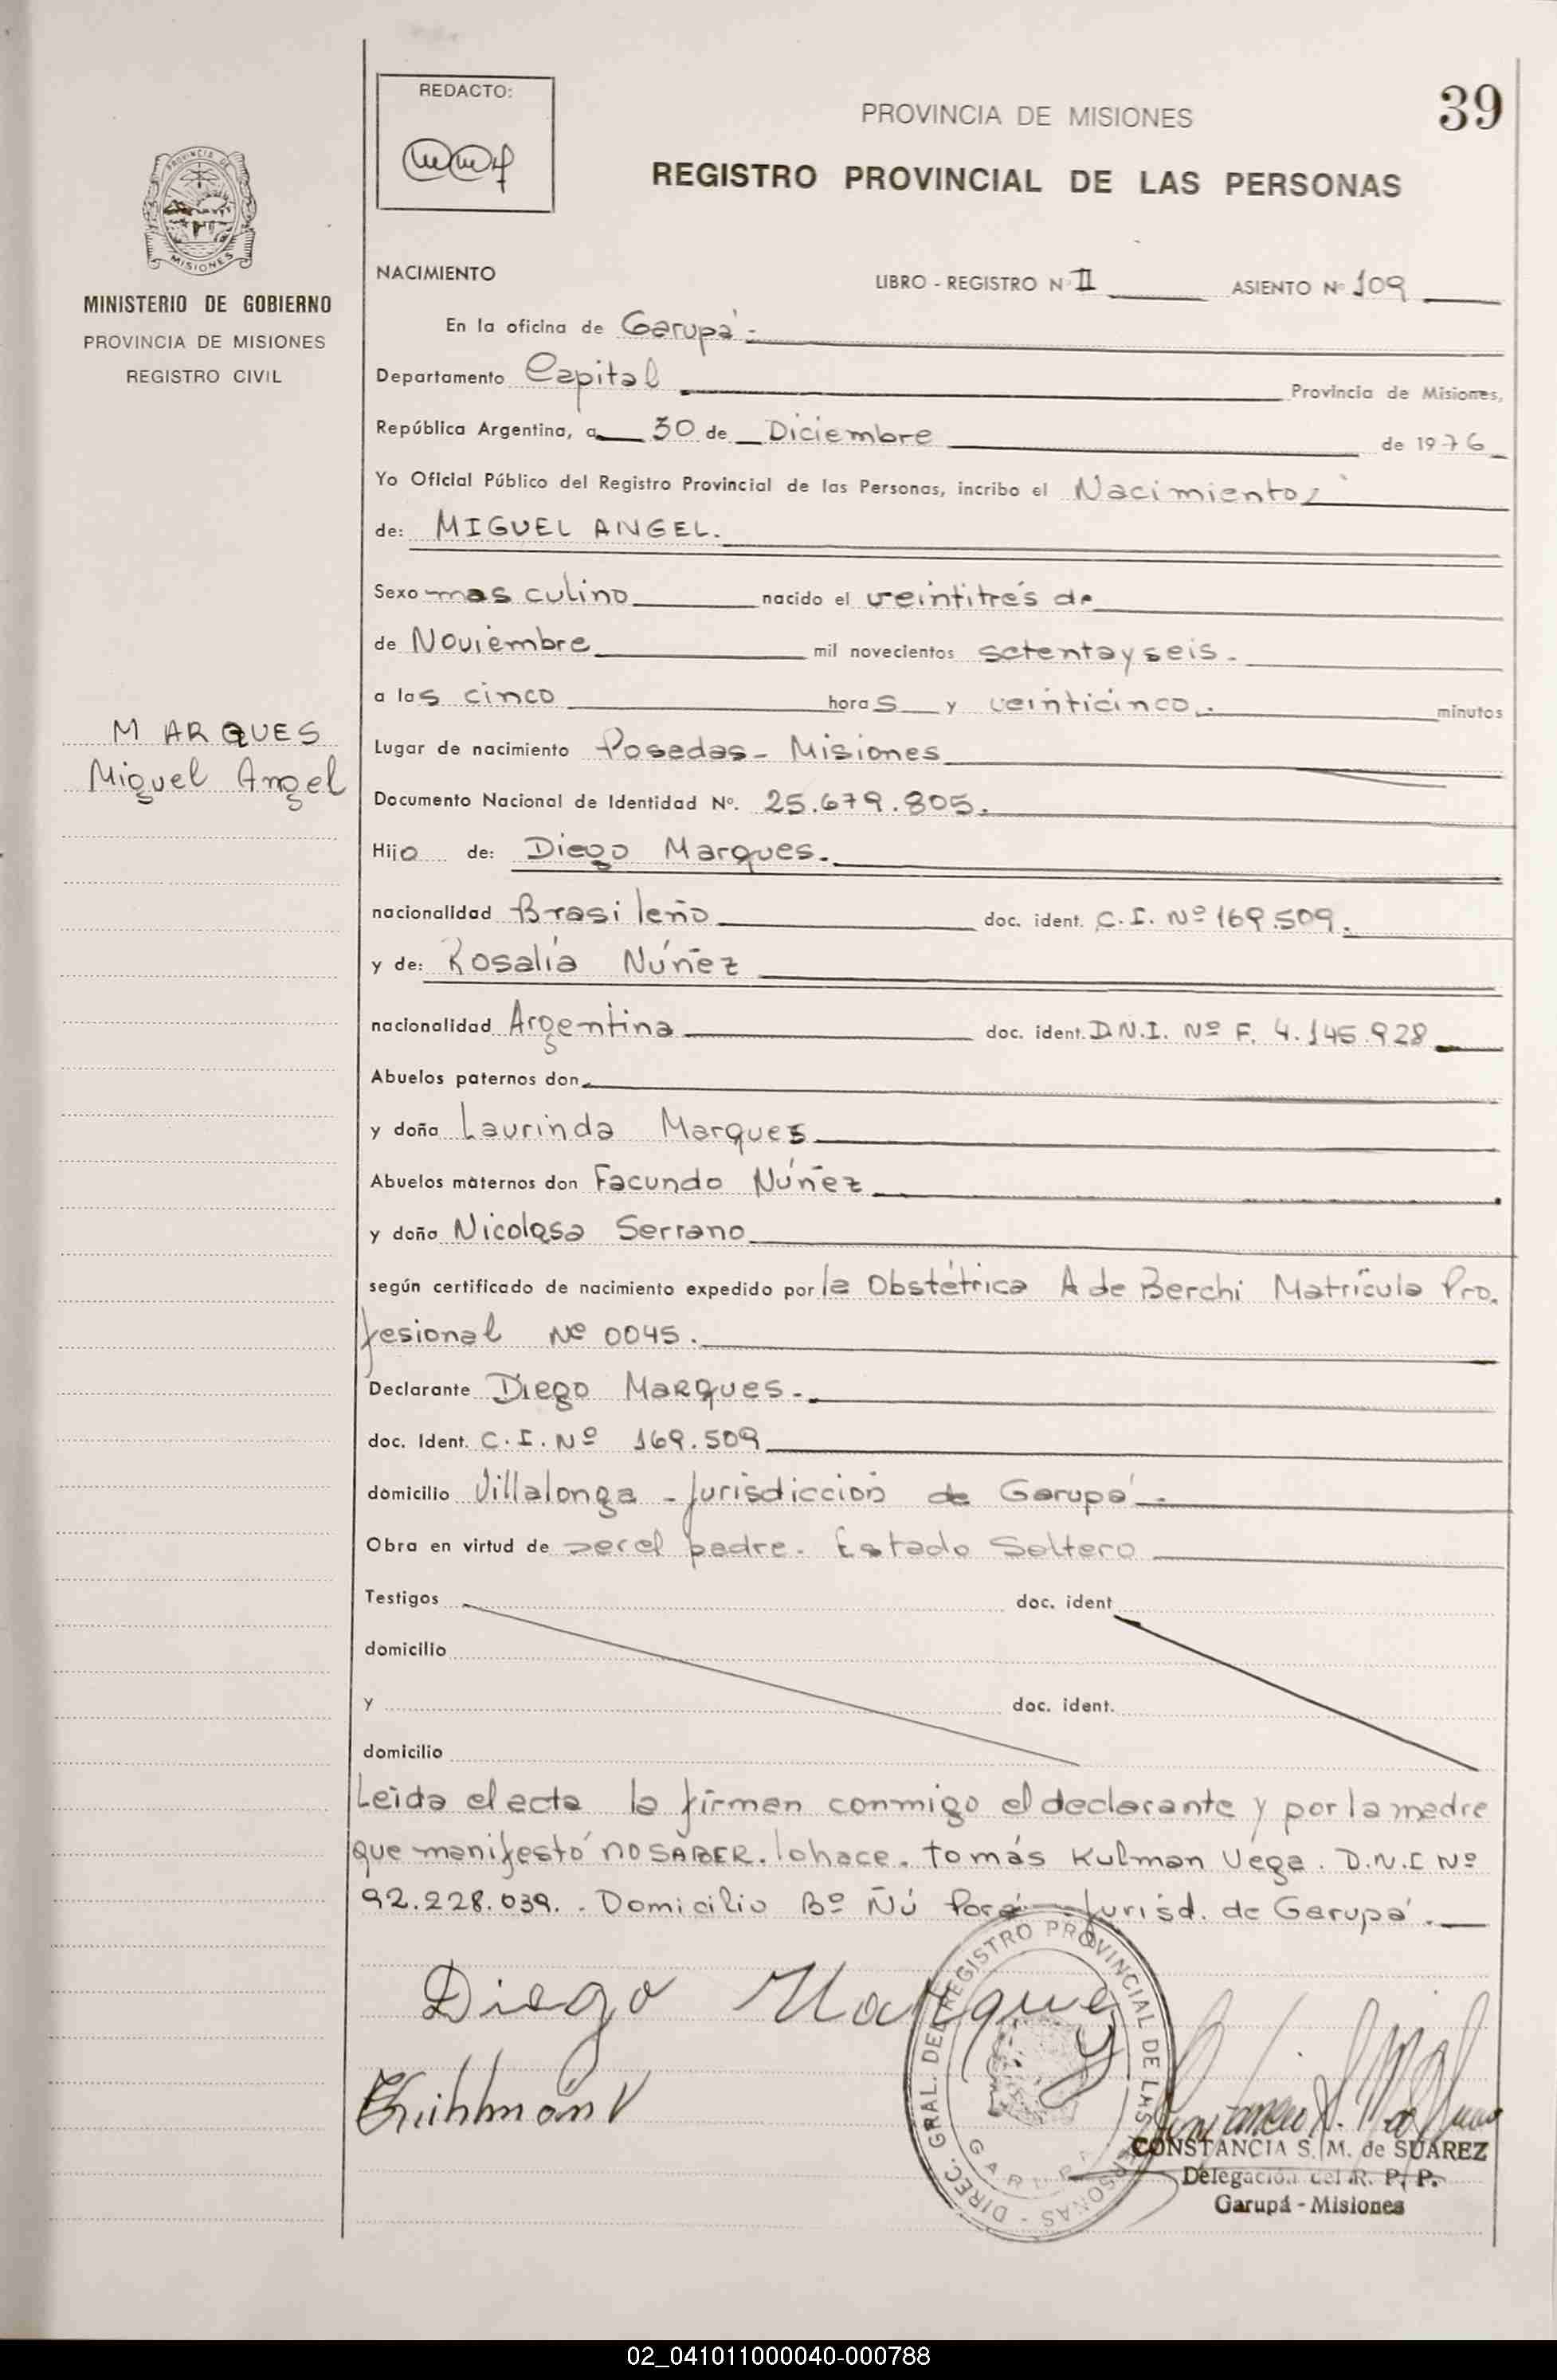 REDACTO:
39
PROVINCIA DE MISIONES
REGISTRO PROVINCIAL DE LAS PERSONAS
PROVINCIA DE
MISIONES
MINISTERIO DE GOBIERNO
PROVINCIA DE MISIONES
REGISTRO CIVIL
NACIMIENTO LIBRO - REGISTRO Nº II ASIENTO Nº 109
En la oficina de Garupá.-
Departamento Capital Provincia de Misiones,
República Argentina, a 30 de Diciembre de 1976
Yo Oficial Público del Registro Provincial de las Personas, incribo el Nacimiento
de: MIGUEL ANGEL.
Sexo masculino nacido el veintitrés de
de Noviembre mil novecientos setenta y seis.
a las cinco horas y veinticinco. minutos
MARQUES
Miguel Angel
Lugar de nacimiento Posadas - Misiones
Documento Nacional de Identidad Nº. 25.679.805.
Hijo de: Diego Marques.
nacionalidad Brasileño doc. ident. C.I. Nº 169.509.
y de: Rosalía Núñez
nacionalidad Argentina doc. ident. D.N.I. Nº F. 4.145.928
Abuelos paternos don
y doña Laurinda Marques
Abuelos maternos don Facundo Núñez
y doña Nicolasa Serrano
según certificado de nacimiento expedido por la Obstétrica A de Berchi Matrícula Pro.
fesional Nº 0045.
Declarante Diego Marques.
doc. Ident. C.I. Nº 169.509
domicilio Villalonga - Jurisdicción de Garupá.
Obra en virtud de ser el padre. Estado Soltero
Testigos doc. ident
domicilio
y doc. ident.
domicilio
Leida el acta la firman conmigo el declarante y por la madre
que manifestó no SABER. lo hace. tomás Kulman Vega. D.N.I Nº
92.228.039.- Domicilio Bº Ñú Porá - Jurisd. de Garupá.
Diego Marques
DIREC. GRAL. DEL REGISTRO PROVINCIAL DE LAS PERSONAS -
GARUPA
CONSTANCIA S. M. de SUAREZ
Delegación del R. P. P.
Garupá - Misiones
02_041011000040-000788